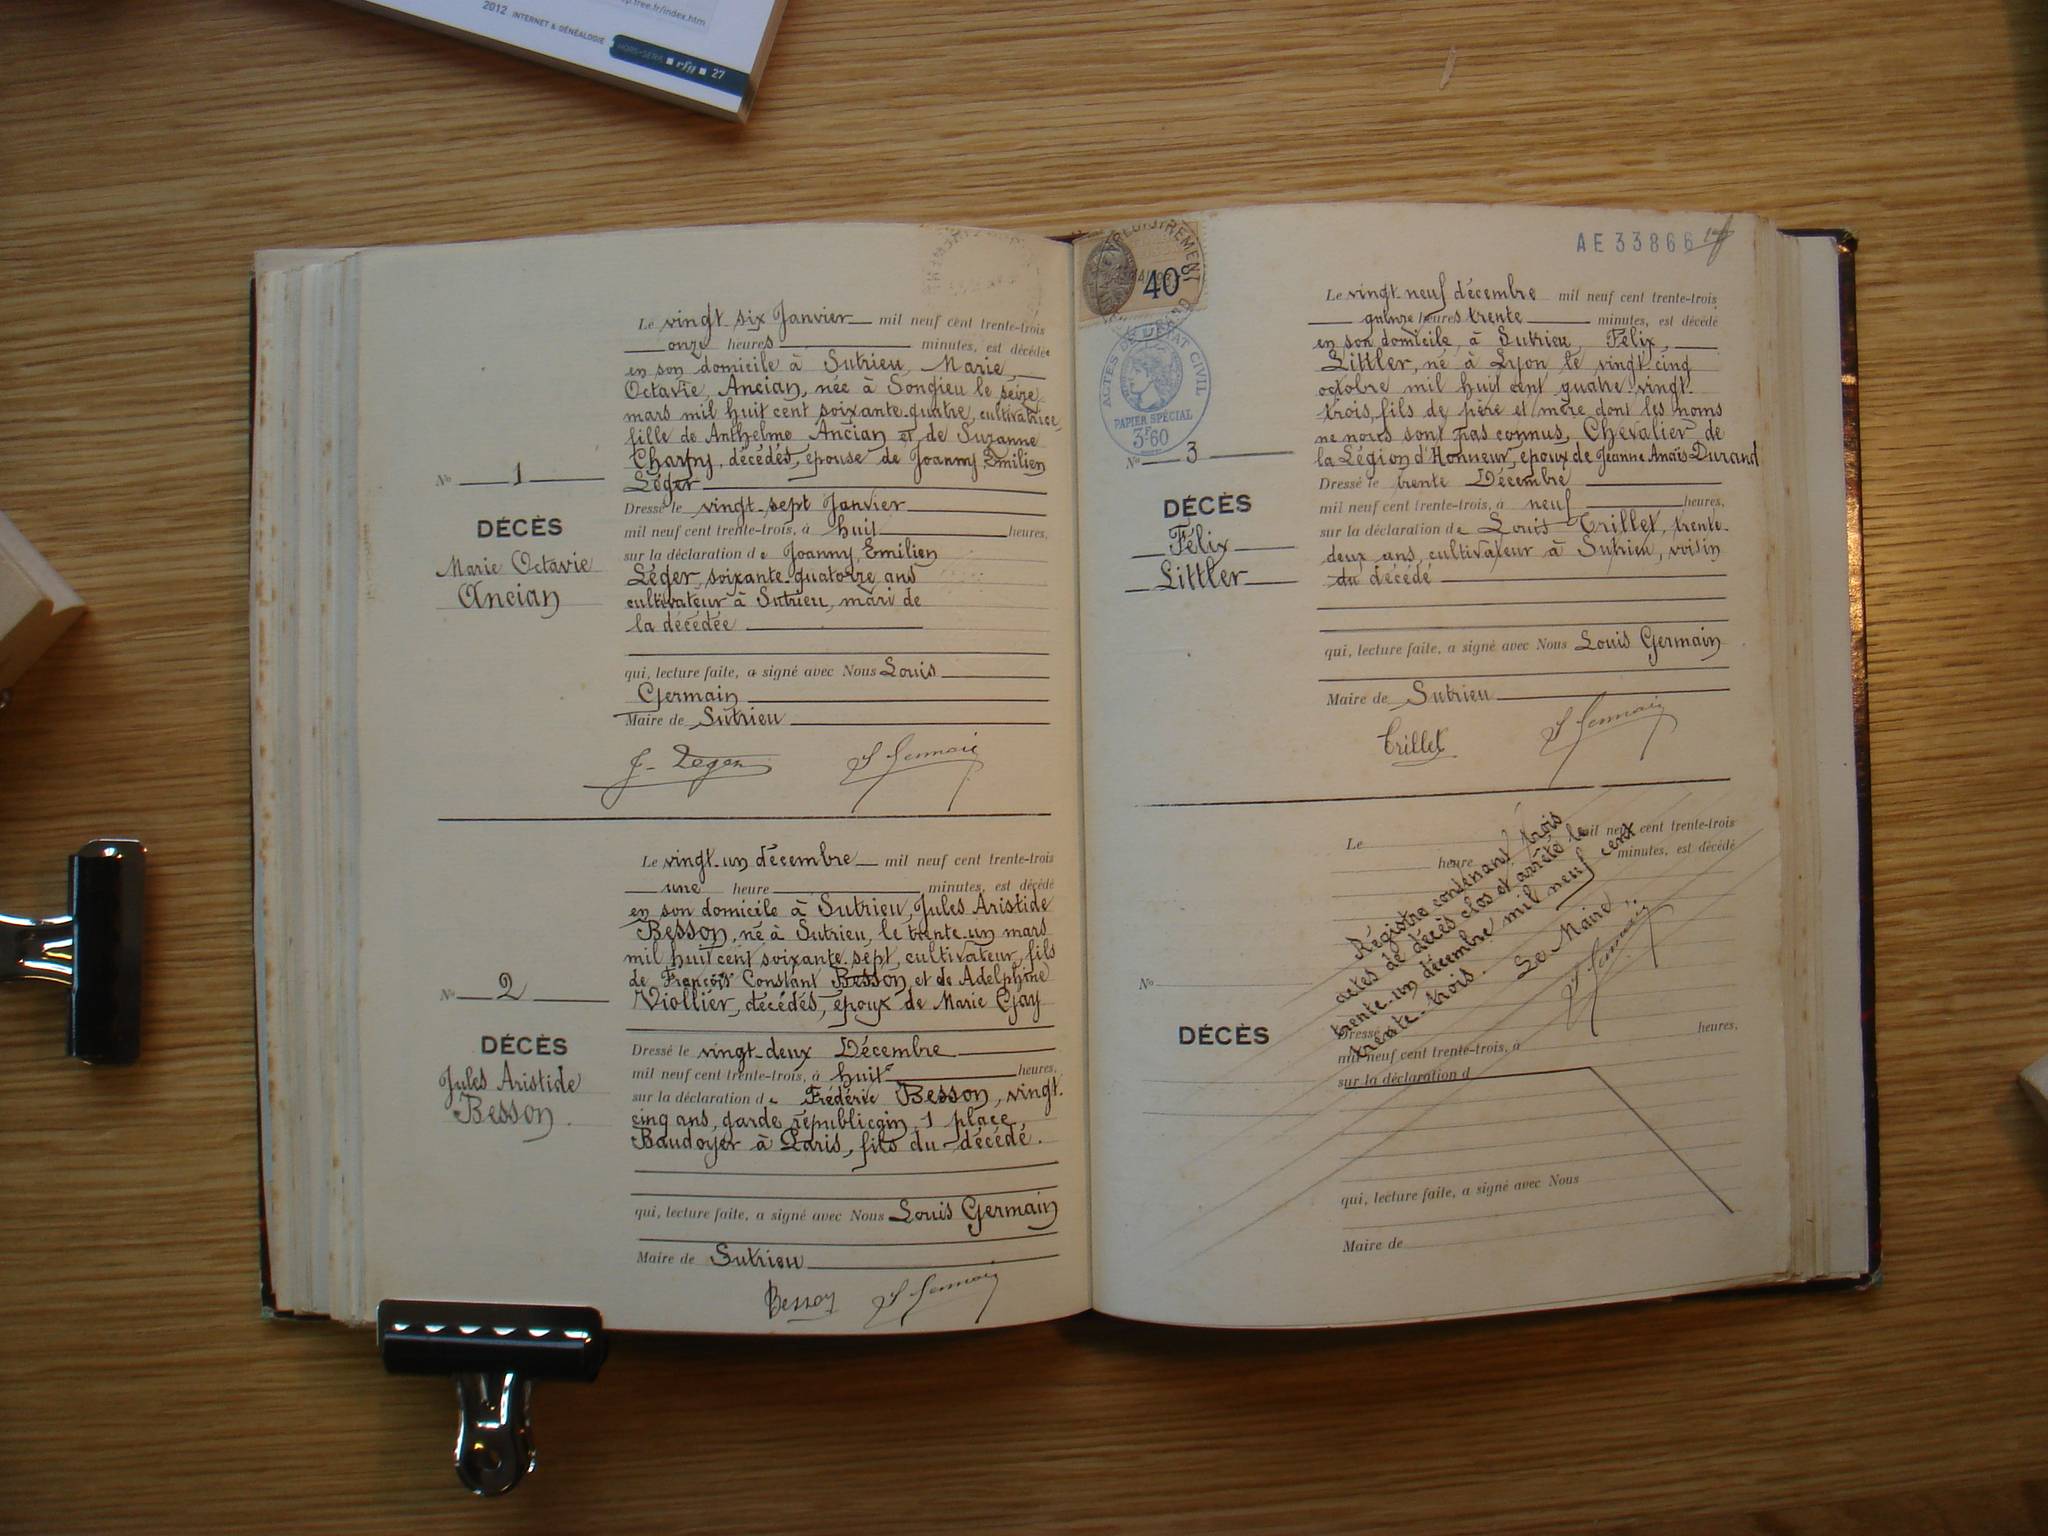 p.free.fr/index.htm
2012 INTERNET & GÉNÉALOGIE HORS-SÉRIE ■ rfg ■ 27
Le vingt six Janvier mil neuf cent trente-trois
onze heures minutes, est décédée
en son domicile à Sutrieu, Marie,
Octavie, Ancian, née à Songieu le seize
mars mil huit cent soixante-quatre, cultivatrice,
fille de Anthelme Ancian et de Suzanne
Charfny, décédés, épouse de Joanny, Emilien
Léger
Nº 1
DÉCÈS
Marie Octavie
Ancian
Dressé le vingt-sept Janvier
mil neuf cent trente-trois, à huit heures,
sur la déclaration de Joanny, Emilien
Léger, soixante-quatorze ans
cultivateur à Sutrieu, mari de
la décédée
qui, lecture faite, a signé avec Nous Louis
Germain
Maire de Sutrieu
J. Leger L Germain
Le vingt-un décembre mil neuf cent trente-trois
une heure minutes, est décédé
en son domicile à Sutrieu, Jules Aristide
Besson, né à Sutrieu, le trente-un mars
mil huit cent soixante sept, cultivateur, fils
de François Constant Besson et de Adelphine
Viollier, décédés, époux de Marie Gay
Nº 2
DÉCÈS
Jules Aristide
Besson.
Dressé le vingt-deux Décembre
mil neuf cent trente-trois, à huit heures,
sur la déclaration de Frédéric Besson, vingt-
cinq ans, garde républicain, 1 place
Baudoyer à Paris, fils du décédé.
qui, lecture faite, a signé avec Nous Louis Germain
Maire de Sutrieu
Besson L Germain
40c
ACTES DE L'ÉTAT CIVIL
PAPIER SPÉCIAL
3F60
AE 33866
Le vingt-neuf décembre mil neuf cent trente-trois
quinze heures trente minutes, est décédé
en son domicile, à Sutrieu, Félix,
Littler, né à Lyon le vingt-cinq
octobre mil huit cent quatre-vingt
trois, fils de père et mère dont les noms
ne nous sont pas connus, Chevalier de
la Légion d'Honneur, époux de Jeanne Anaïs Durand
Nº 3
DÉCÈS
Félix
Littler
Dressé le trente Décembre
mil neuf cent trente-trois, à neuf heures,
sur la déclaration de Louis Trillet, trente-
deux ans, cultivateur à Sutrieu, voisin
du décédé
qui, lecture faite, a signé avec Nous Louis Germain
Maire de Sutrieu
Trillet L Germain
Le mil neuf cent trente-trois
heure minutes, est décédé
Régistre contenant trois
actes de décès clos et arrêté le
trente-un décembre mil neuf cent
trente-trois.
Le Maire,
L Germain
Nº
DÉCÈS
Dressé heures,
mil neuf cent trente-trois, à
sur la déclaration d
qui, lecture faite, a signé avec Nous
Maire de